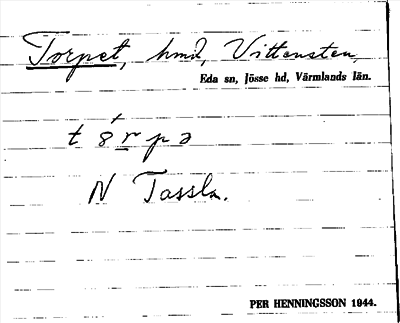 Torpet, hmd, Vittensten,
Eda sn, Jösse hd, Värmlands län.
N Tassla.
PER HENNINGSSON 1944.